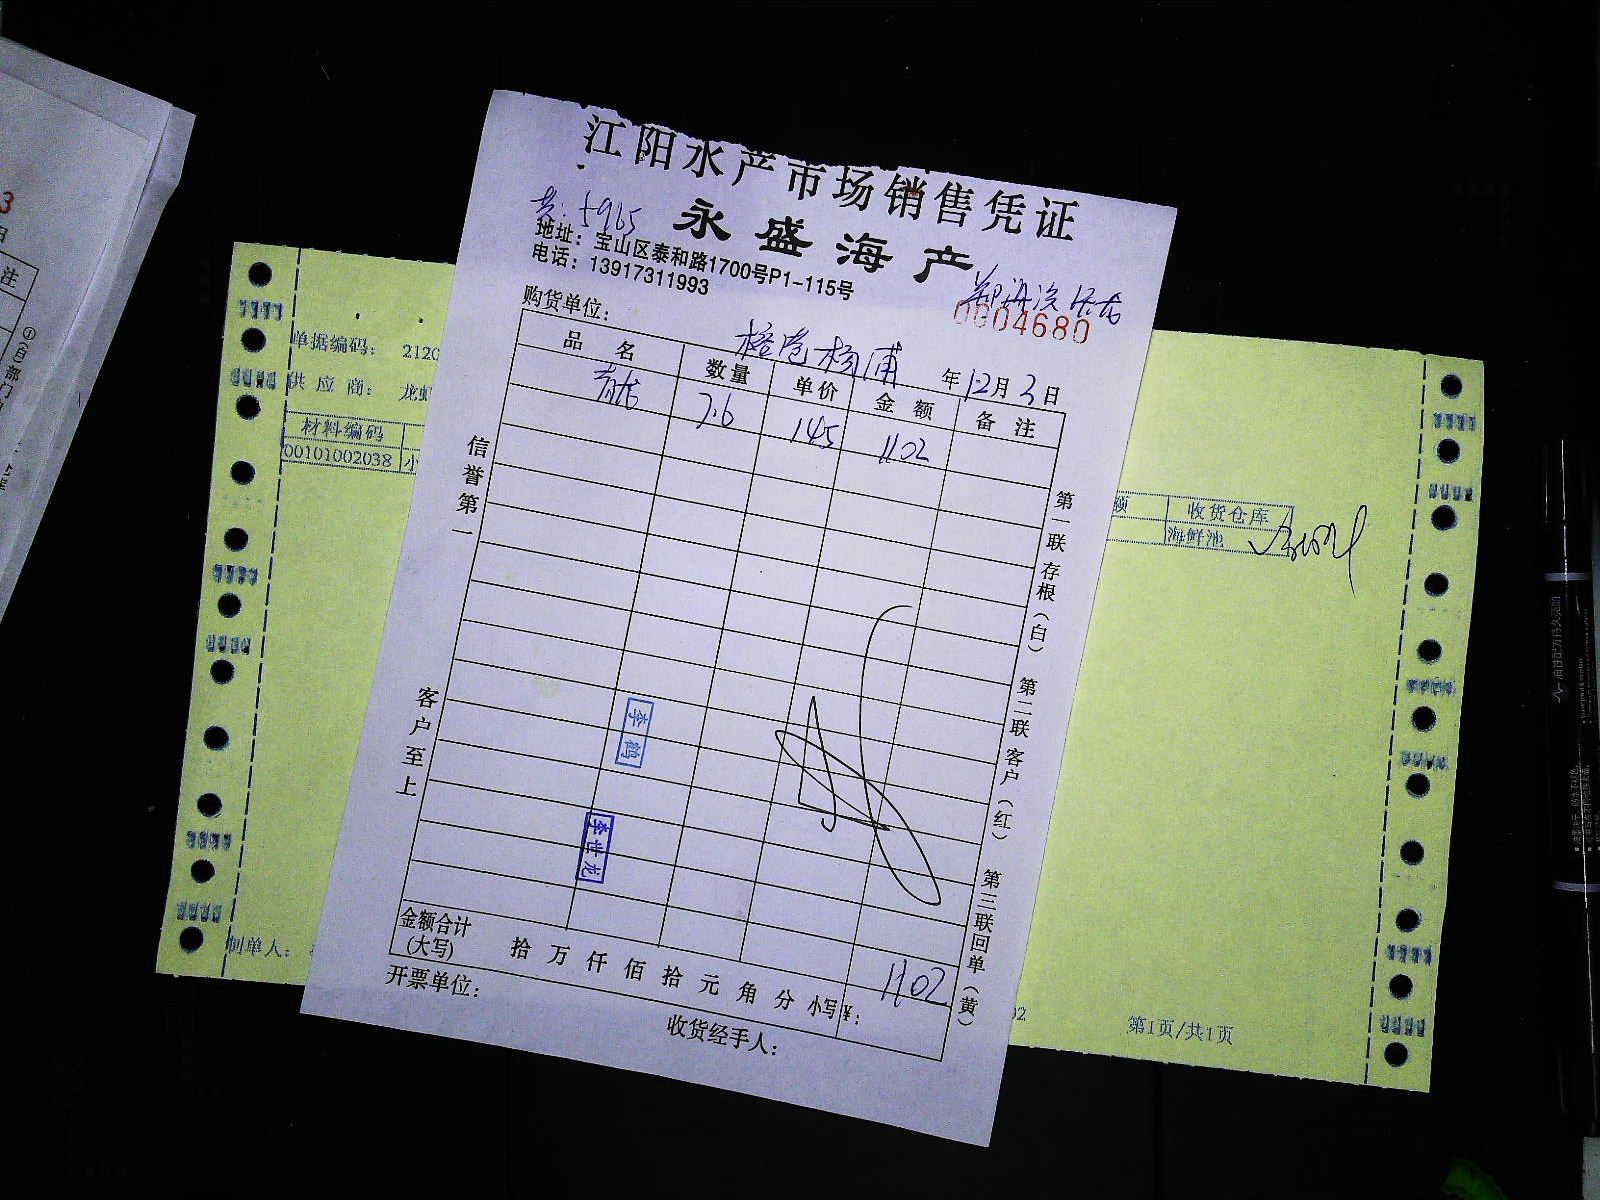 江阳水产市场销售凭证
永盛海产
5965
地址：宝山区泰和路1700号P1-115号
电话：13917311993
0004680
购货单位：
杨浦
年12月3日
品名 数量 单价 金额 备注
青龙 7.6 145 1102
信誉第一
客户至上
第一联存根（白） 第二联客户（红） 第三联回单（黄）
李鹤
李世龙
金额合计
(大写)
拾万仟佰拾元角分 小写¥: 1102
开票单位：
收货经手人：
单据编码： 2120
供应商： 龙虾
材料编码
00101002038 小
额 收货仓库
海鲜池
制单人：
第1页/共1页
3
日
注
①(白)部门